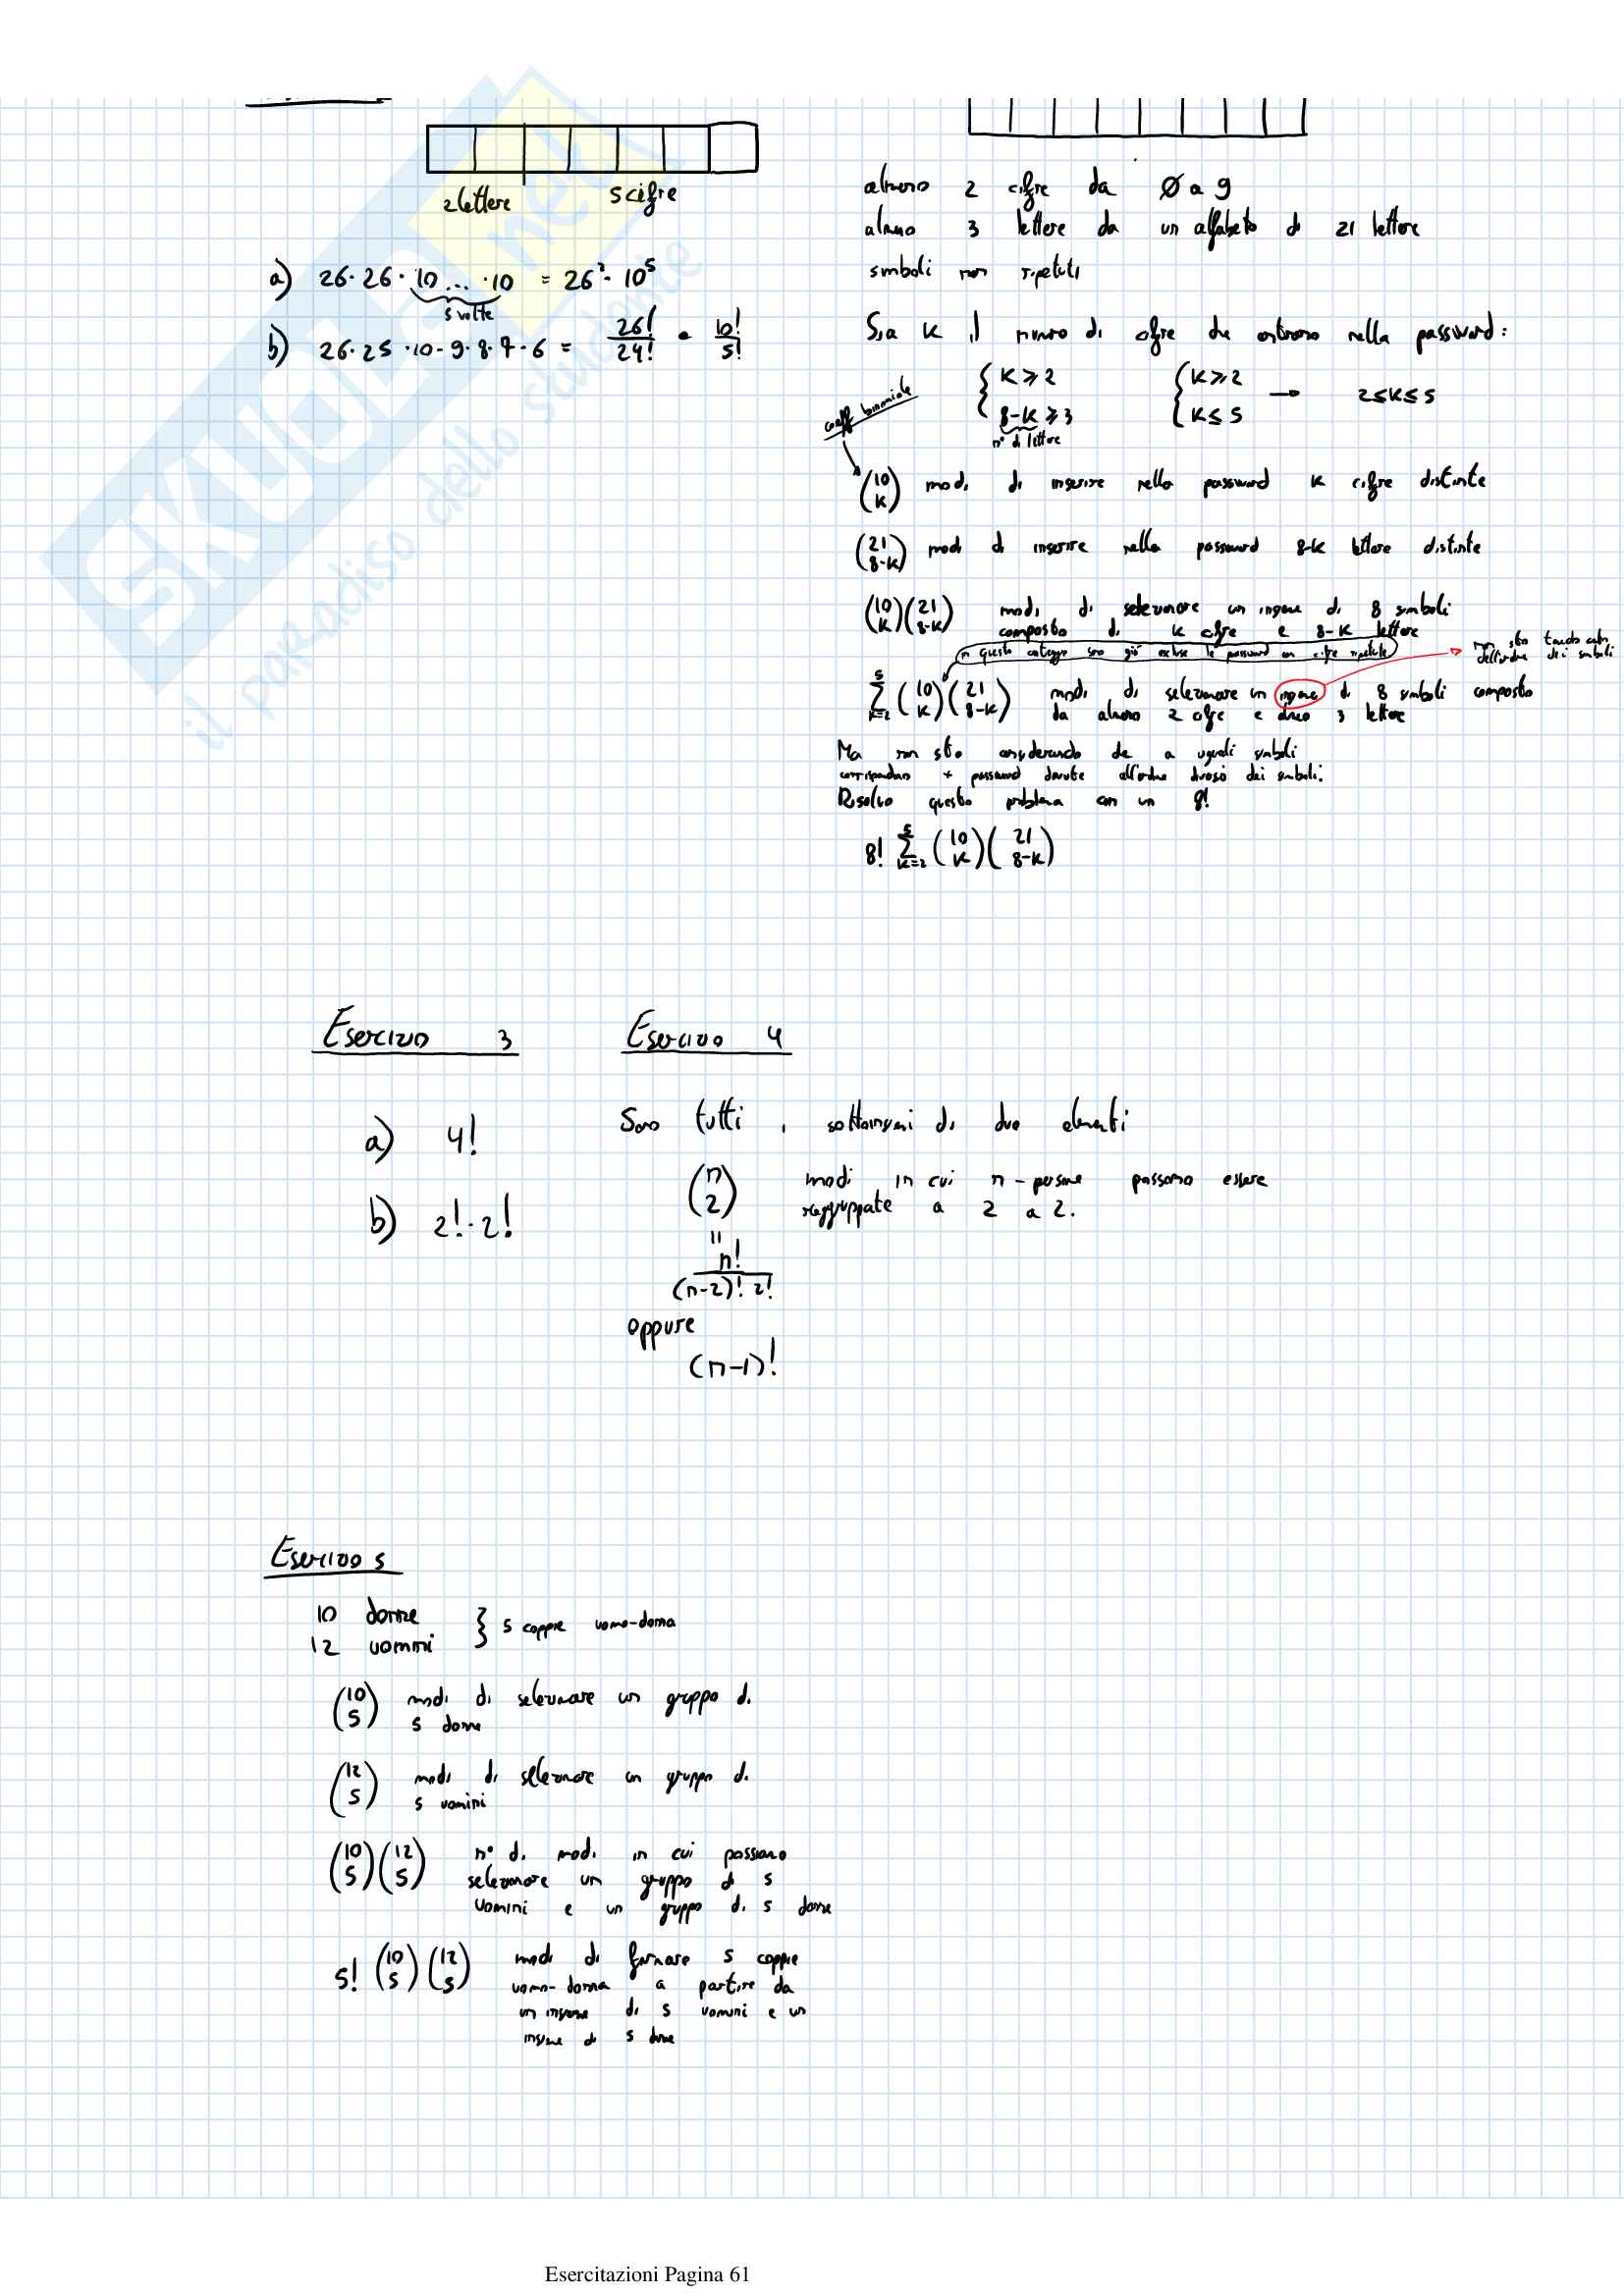 2 lettere 5 cifre
a) 26·26·10...·10 = 26²·10⁵
5 volte
b) 26·25·10·9·8·7·6 = 26!/24! · 10!/5!
almeno 2 cifre da Ø a 9
almeno 3 lettere da un alfabeto di 21 lettere
simboli non ripetuti
Sia K il numero di cifre che entrano nella password:
{ K ≥ 2 { K ≥ 2 → 2 ≤ K ≤ 5
{ 8-K ≥ 3 { K ≤ 5
n° di lettere
coeff binomiale
(10 K) modi di inserire nella password K cifre distinte
(21 8-K) modi di inserire nella password 8-K lettere distinte
(10 K)(21 8-K) modi di selezionare un insieme di 8 simboli
composto di K cifre e 8-K lettere
in questo conteggio sono già escluse le password con cifre ripetute
non sto tenendo conto
dell'ordine dei simboli
5 Σ K=2 (10 K)(21 8-K) modi di selezionare un insieme di 8 simboli composto
da almeno 2 cifre e almeno 3 lettere
Ma non sto considerando che a uguali simboli
corrispondono + password dovute all'ordine diverso dei simboli.
Risolvo questo problema con un 8!
8! 5 Σ K=2 (10 K)(21 8-K)
Esercizio 3
a) 4!
b) 2!·2!
Esercizio 4
Sono tutti i sottoinsiemi di due elementi
(n 2) modi in cui n-persone possono essere
raggruppate a 2 a 2.
=
n!
(n-2)! 2!
oppure
(n-1)!
Esercizio 5
10 donne
12 uomini } 5 coppie uomo-donna
(10 5) modi di selezionare un gruppo di
5 donne
(12 5) modi di selezionare un gruppo di
5 uomini
(10 5)(12 5) n° di modi in cui possiamo
selezionare un gruppo di 5
uomini e un gruppo di 5 donne
5! (10 5)(12 5) modi di formare 5 coppie
uomo-donna a partire da
un insieme di 5 uomini e un
insieme di 5 donne
SKUOLA.net
il paradiso dello studente
Esercitazioni Pagina 61